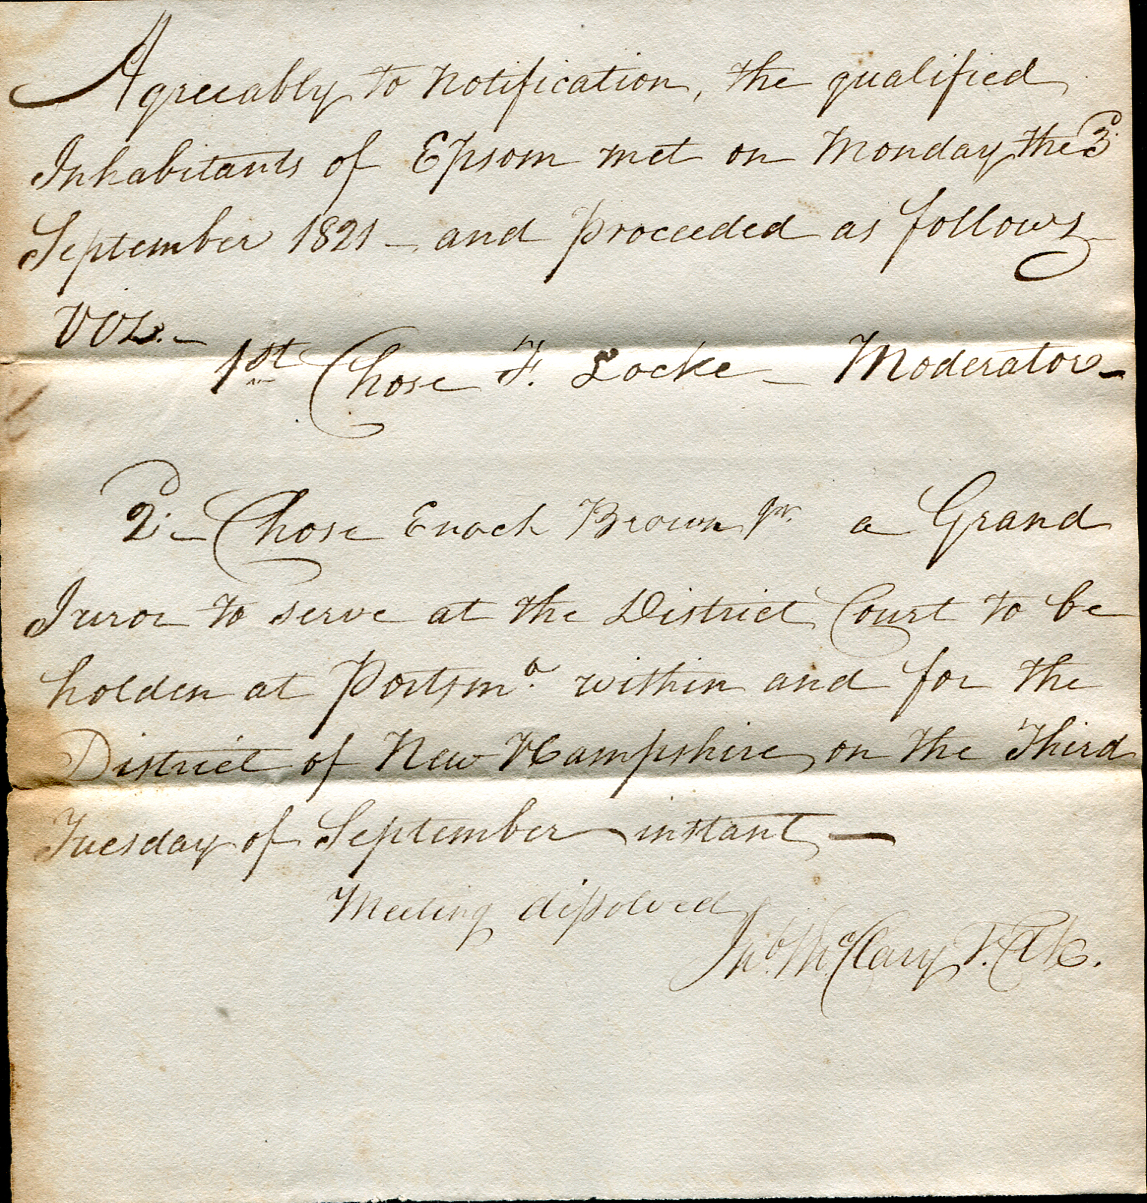 Agreeably to notification, the qualified
Inhabitants of Epsom met on Monday the 3d
September 1821 — and proceeded as follows
Viz. —
1st Chose F. Locke — Moderator —
2d — Chose Enoch Brown Jr. a Grand
Juror to serve at the District Court to be
holden at Portsmo. within and for the
District of New Hampshire, on the Third
Tuesday of September instant —
Meeting dissolved
Jno. McClary T. Clk.